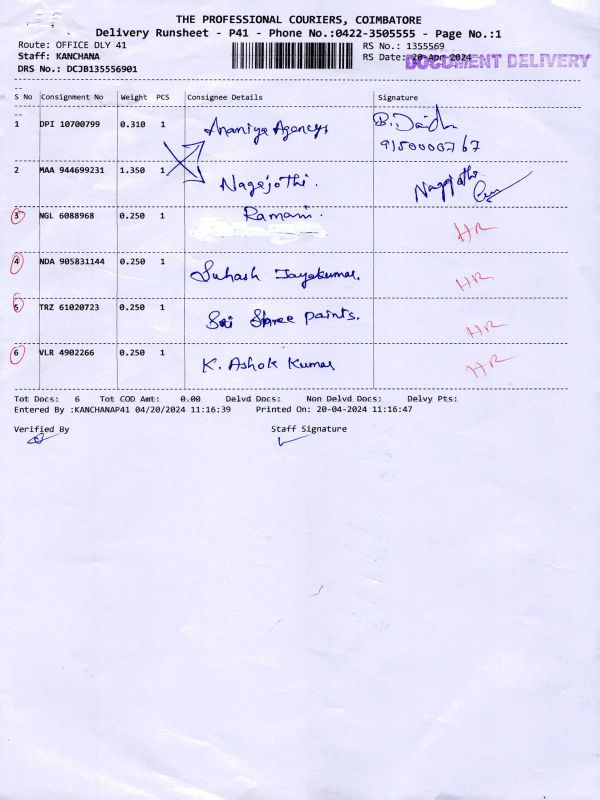 THE PROFESSIONAL COURIERS, COIMBATORE
Delivery Runsheet - P41 - Phone No.:0422-3505555 - Page No.:1
Route: OFFICE DLY 41
RS No.: 1355569
Staff: KANCHANA
RS Date: 20-Apr-2024
DOCUMENT DELIVERY
DRS No.: DCJB135556901
S No Consignment No Weight PCS Consignee Details Signature
1 DPI 10700799 0.310 1 Ananiya Agencys
9150000767
2 MAA 944699231 1.350 1 Nagejothi. Nagejothi
3 NGL 6088968 0.250 1 Ramani. HR
4 NDA 905831144 0.250 1 Suhash Jayakumar. HR
5 TRZ 61020723 0.250 1 Sri Shree paints. HR
6 VLR 4902266 0.250 1 K. Ashok Kumar HR
Tot Docs: 6 Tot COD Amt: 0.00 Delvd Docs: Non Delvd Docs: Delvy Pts:
Entered By :KANCHANAP41 04/20/2024 11:16:39 Printed On: 20-04-2024 11:16:47
Verified By Staff Signature